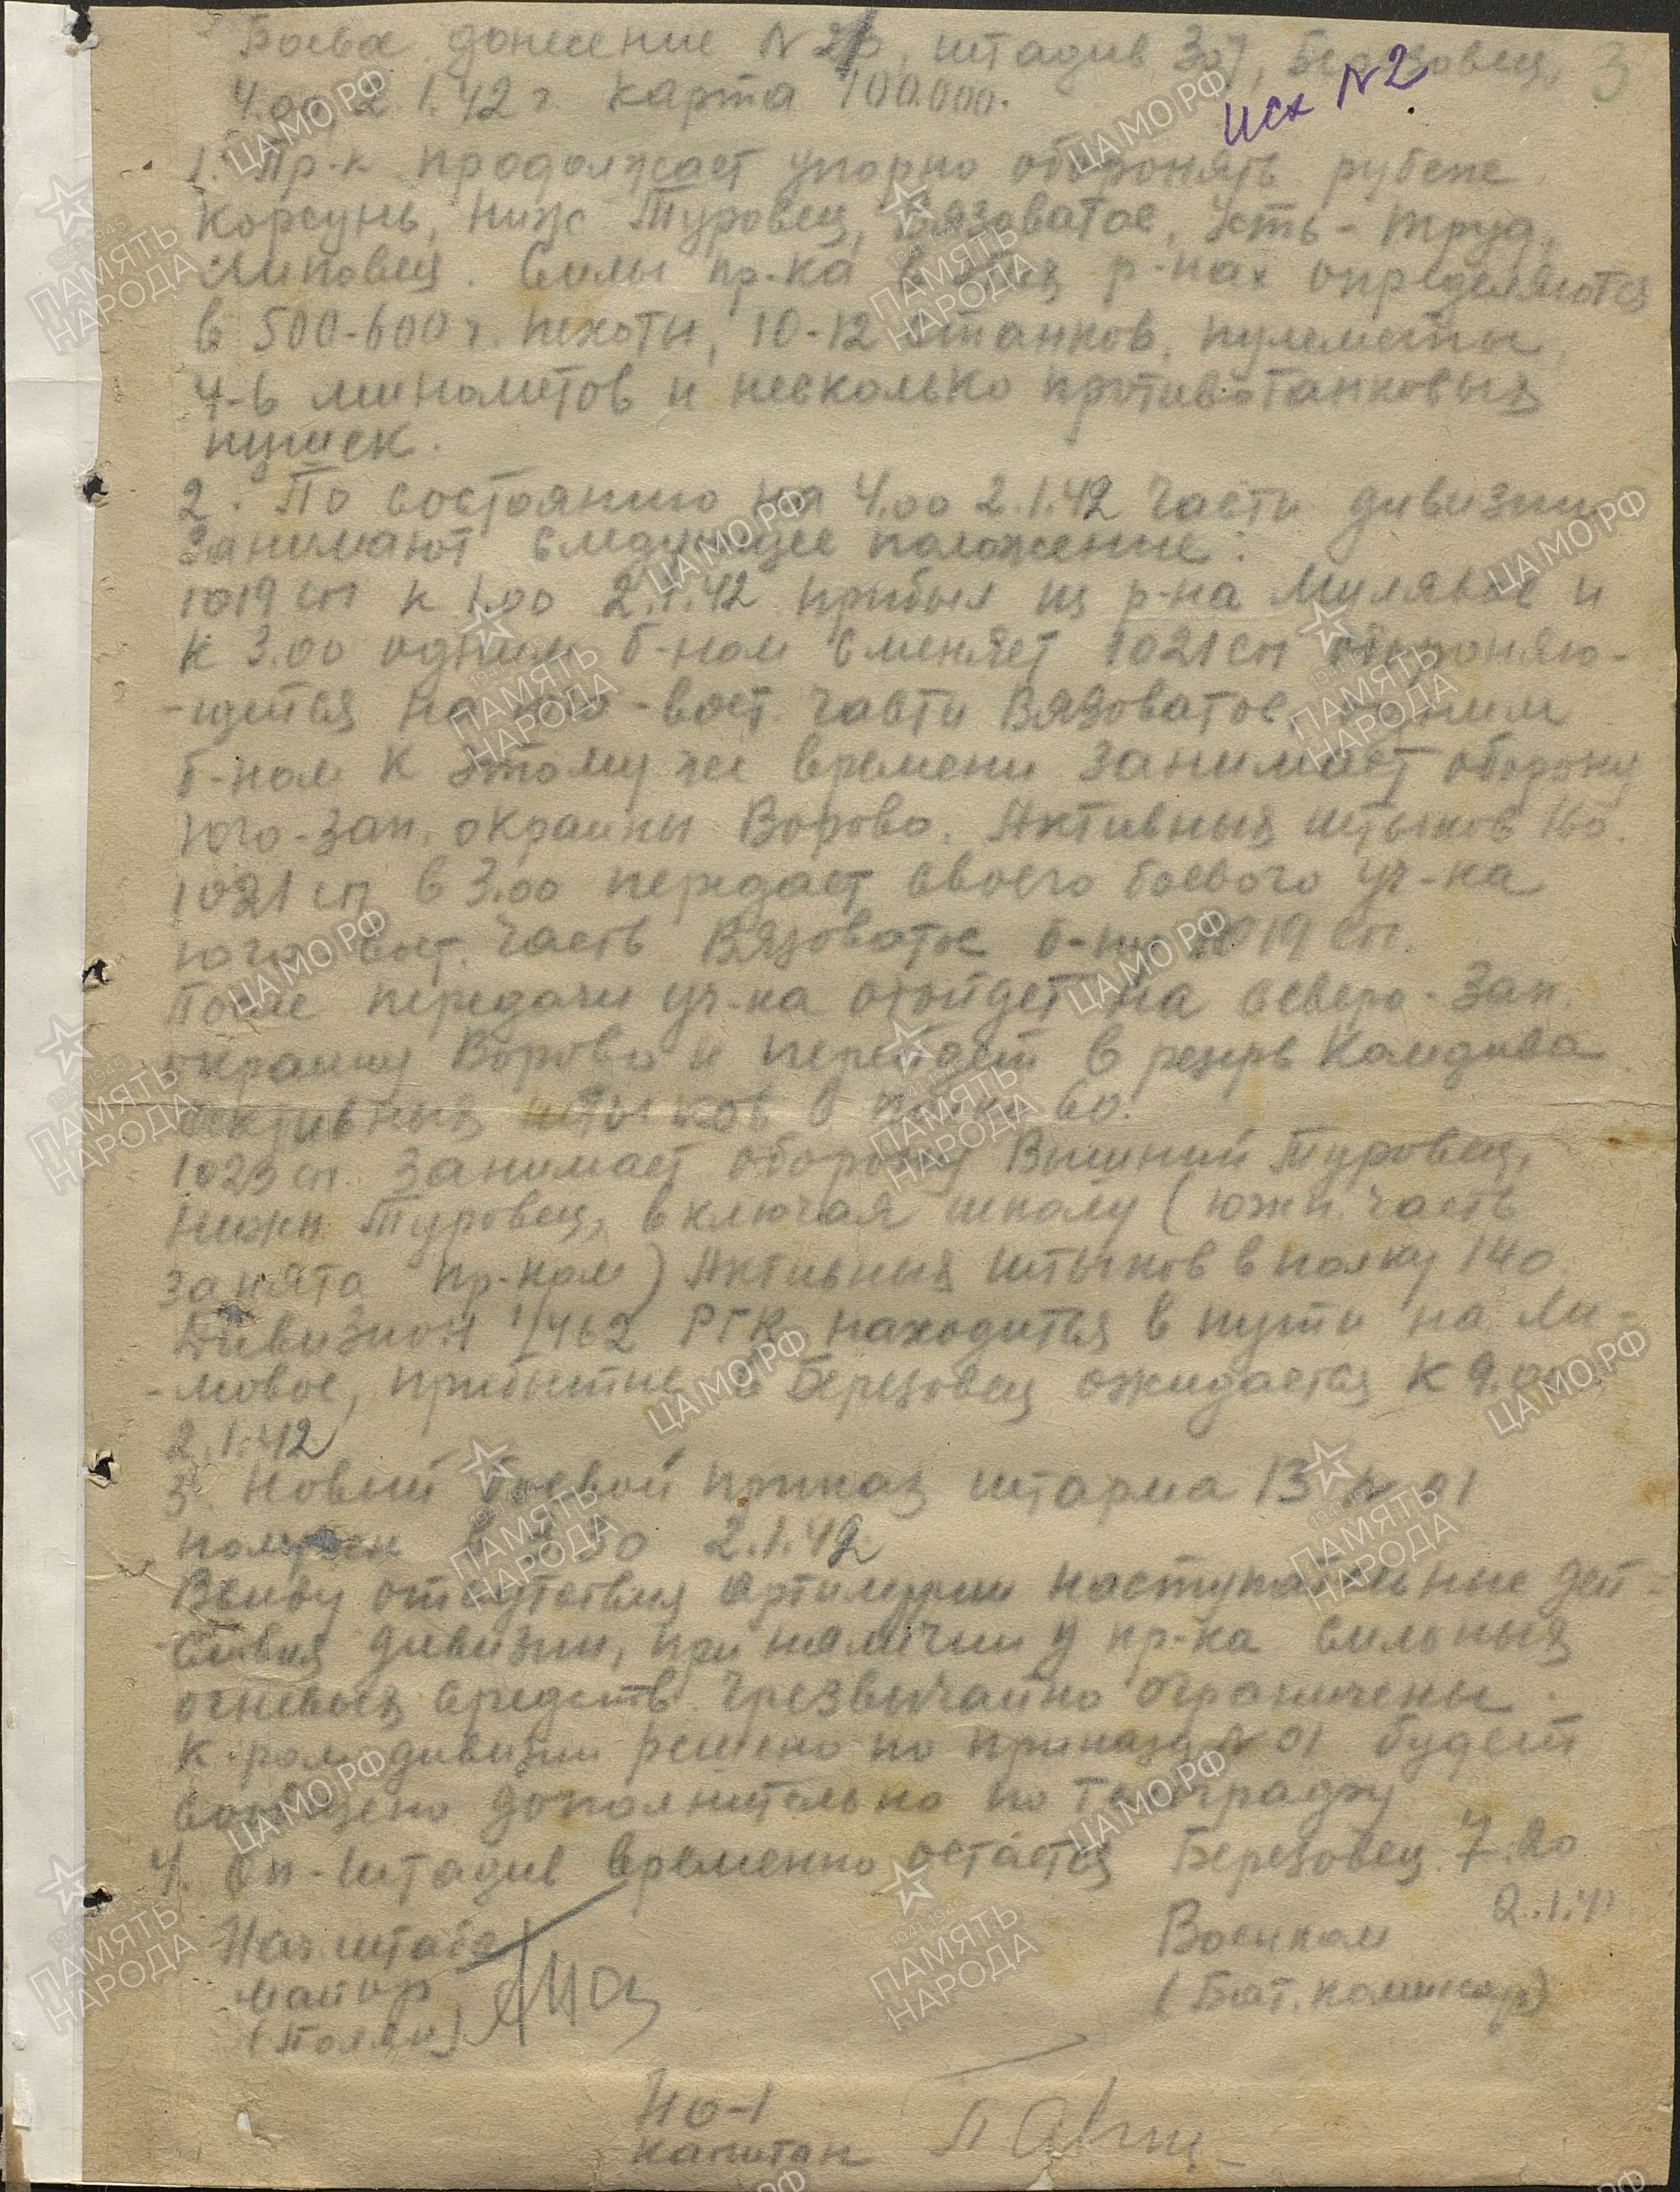 Боевое донесение N , штадив 307, Березовец,
4.00 2.1.42 г. карта 100.000.
Исх N2
3
1. Пр-к продолжает упорно оборонять рубеж
Корсунь, Ниж. Туровец, Вязоватое, Усть-Труд,
Липовец. Силы пр-ка в этих р-нах определяются
в 500-600 ч. пехоты, 10-12 танков, пулеметы,
4-6 минометов и несколько противотанковых
пушек.
2. По состоянию на 4.00 2.1.42 части дивизии
занимают следующее положение:
1019 сп к 1.00 2.1.42 прибыл из р-на и
к 3.00 одним б-ном сменяет 1021 сп обороняю-
-щийся на юго-вост. части Вязоватое, одним
б-ном к этому же времени занимает оборону
юго-зап. окраины Ворово. Активных штыков 160.
1021 сп в 3.00 передает своего боевого уч-ка
юго-вост. часть Вязоватое б-ну 1019 сп.
После передачи уч-ка отойдет на северо-зап.
окраину Ворово и перейдет в резерв Комдива.
Активных штыков в полку 60.
1023 сп. занимает оборону Вышний Туровец,
Нижн Туровец, включая школу (южн. часть
занята пр-ком) Активных штыков в полку 140.
Дивизион 1/462 РГК находится в пути на Ли-
-мовое, прибытие в Березовец ожидается к 9.00
2.1.42
3. Новый боевой приказ штарма 13 N 01
получен в 2.1.42
Ввиду отсутствия артиллерии наступательные дей-
-ствия дивизии, при наличии у пр-ка сильных
огневых средств чрезвычайно ограничены.
решено по приказу N 01 будет
сообщено дополнительно по телеграфу
4. Оп-штадив временно остается Березовец 7.20
2.1.4
Нач.штаба
майор
Военком
(Бат. комиссар)
НО-1
капитан
ЦА МО РФ
ПАМЯТЬ НАРОДА
1941-1945